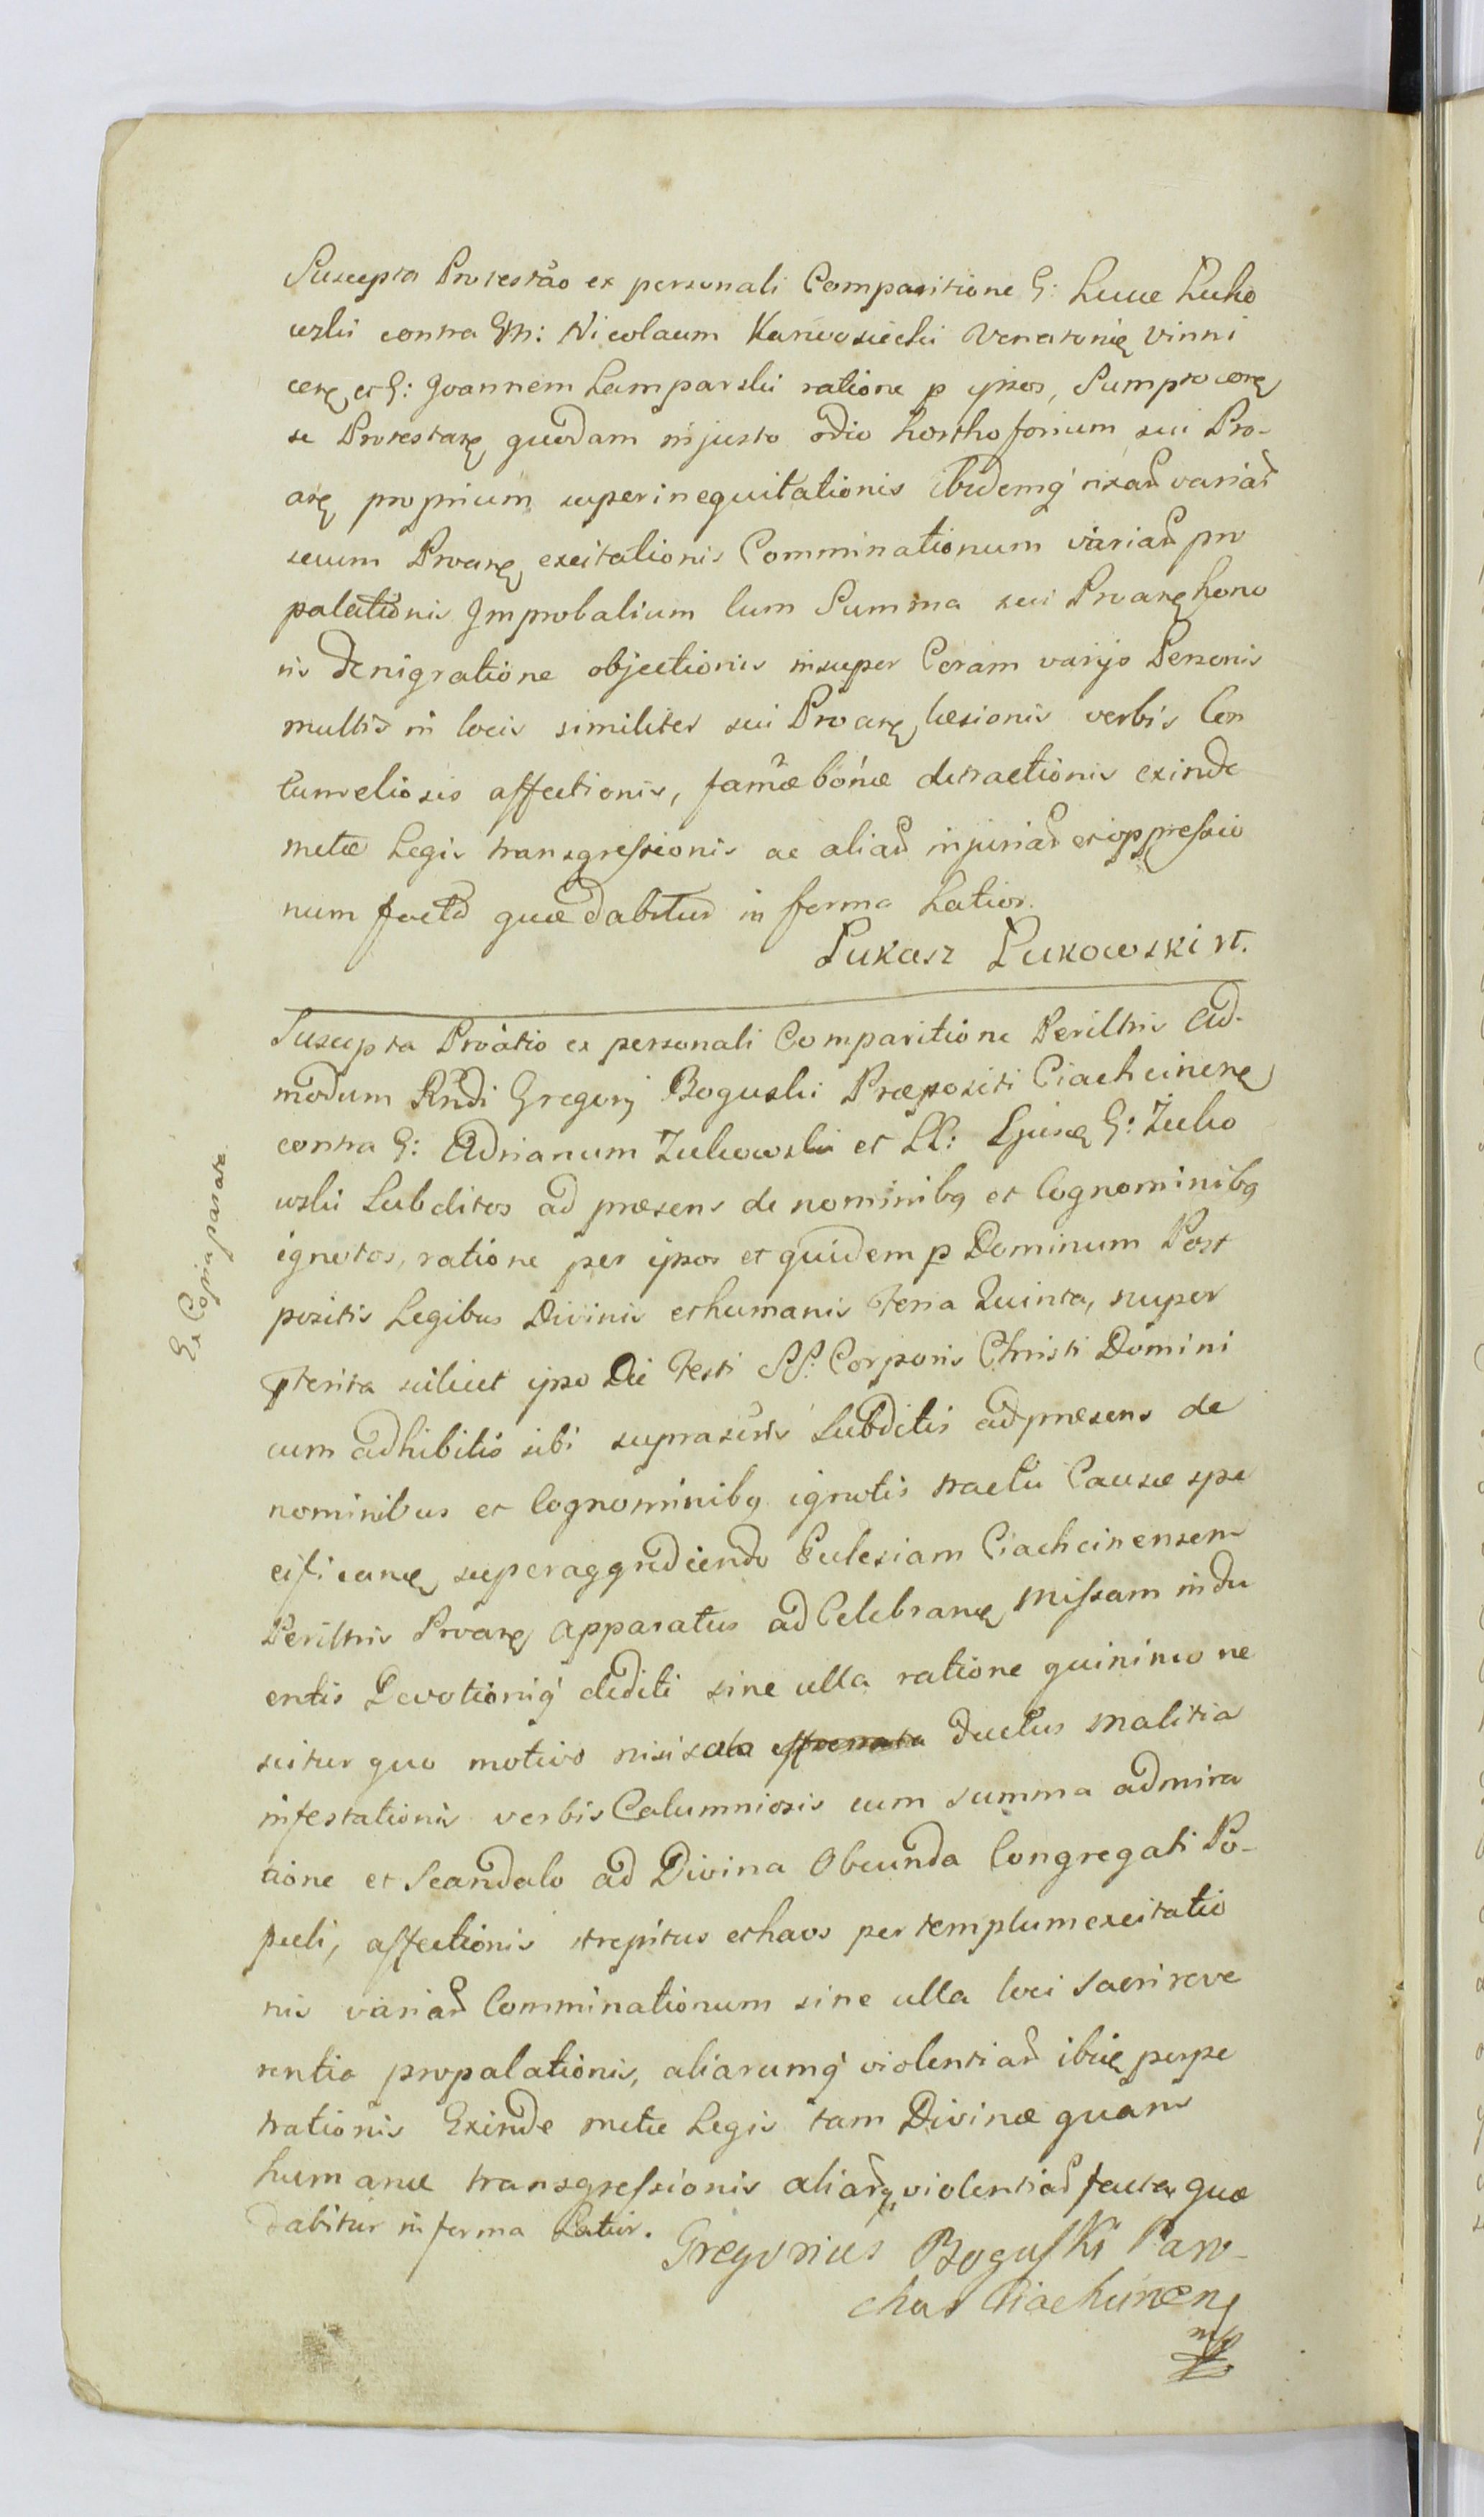 Suscepta Protestão ex personali Comparitione G: Lucæ Luko
wski contra Gn: Nicolaum Karwosiecki Venatorię Vinni
cen̨ et G: Joannem Lamparski ratione p ipsos, Sumpto
se Protestan̨ quodam injusto odio horthoforium sui Pro-
an̨ proprium superinequitationis ibidemq́ rixar̃ variar̃
secum Proan̨ excitationis Comminationum variar̃ pro
palationis Improbalium Cum Summa sui Proan̨ hono
ris denigratione objectionis insuper Coram varijs Personis
multis in locis similiter sui Proan̨ læsionis verbis Con
tumeliosis affectionis, famæ bonæ detractionis exinde
metæ Legis transgressionis ac aliar̃ injuriar̃ et oppressio
num facta quæ dabitur in forma Latior.
Łukasz Łukowski
Suscepta Proãtio ex personali Comparitione Perillris Ad-
modum Rñdi Gregorij Boguski Præpositi Ciachcinen̨
contra G: Adrianum Zukowski et LL: Ejusd̨ G: Żuko
wski Subditos ad præsens de nominibq et Cognominibq
ignotos, ratione per ipsos et quidem p Dominum Post
positis Legibus Divinis et humanis Feria Quinta, nuper
pterita scilicet ipso Die Festi SS. Corporis Christi Domini
cum adhibitis sibi suprascris Subditis ad præsens de
nominibus et Cognominibq ignotis tractu Causæ spe
cificand̨ superaggrediendo Ecclesiam Ciachcinensem
Perillris Proan̨ apparatus ad Celebrand̨ Missam indu
entis Devotioniq́ dediti sine ulla ratione quinimo ne
scitur quo motivo nisi sola effrenata ductus malitia
infestationis verbis Calumniosis cum summa admira
tione et Scandalo ad Divina Obeunda Congregati Po-
puli, affectionis strepitus et haos per templum excitatio
nis variar̃ Comminationum sine ulla loci Sacri reve
rentia propalationis, aliarumq́ violentiar̃ ibid̨ perpe
trationis Exinde metæ Legis tam Divinæ quam
humanæ transgressionis aliarq̃ violentiar̃ facta quæ
dabitur in forma Latior.
Gregorius Boguski Paro-
chus Ciachcinen̨
mp
Ex Copia parata